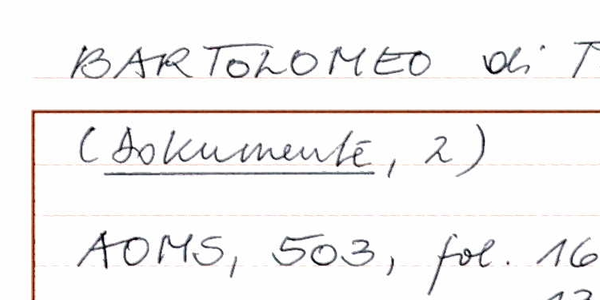 BARTOLOMEO di T
(Dokumente, 2)
AOMS, 503, fol. 16